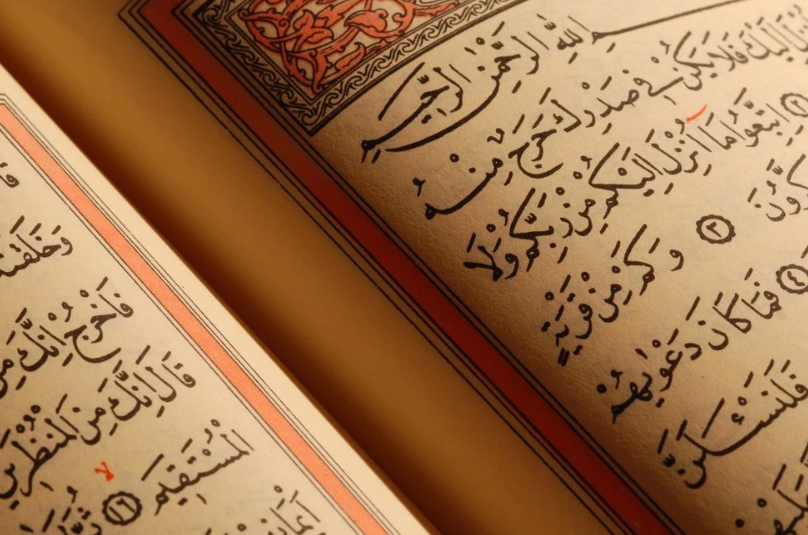 اللهِ الرَّحْمٰنِ الرَّحِيمِ
اِلَيْكَ فَلَا يَكُنْ فِي صَدْرِكَ حَرَجٌ مِنْهُ
٢ اِتَّبِعُوا مَا اُنْزِلَ اِلَيْكُمْ مِنْ رَبِّكُمْ وَلَا
كَّرُونَ ٣ وَكَمْ مِنْ قَرْيَةٍ
٤ فَمَا كَانَ دَعْوٰيهُمْ
فَلَنَسْـَٔلَنَّ
وَخَلَقْتَهُ
فَاخْرُجْ اِنَّكَ مِنَ
قَالَ اِنَّكَ مِنَ الْمُنْظَرِينَ
لا
الْمُسْتَقِيمَ ١٦ ثُمَّ